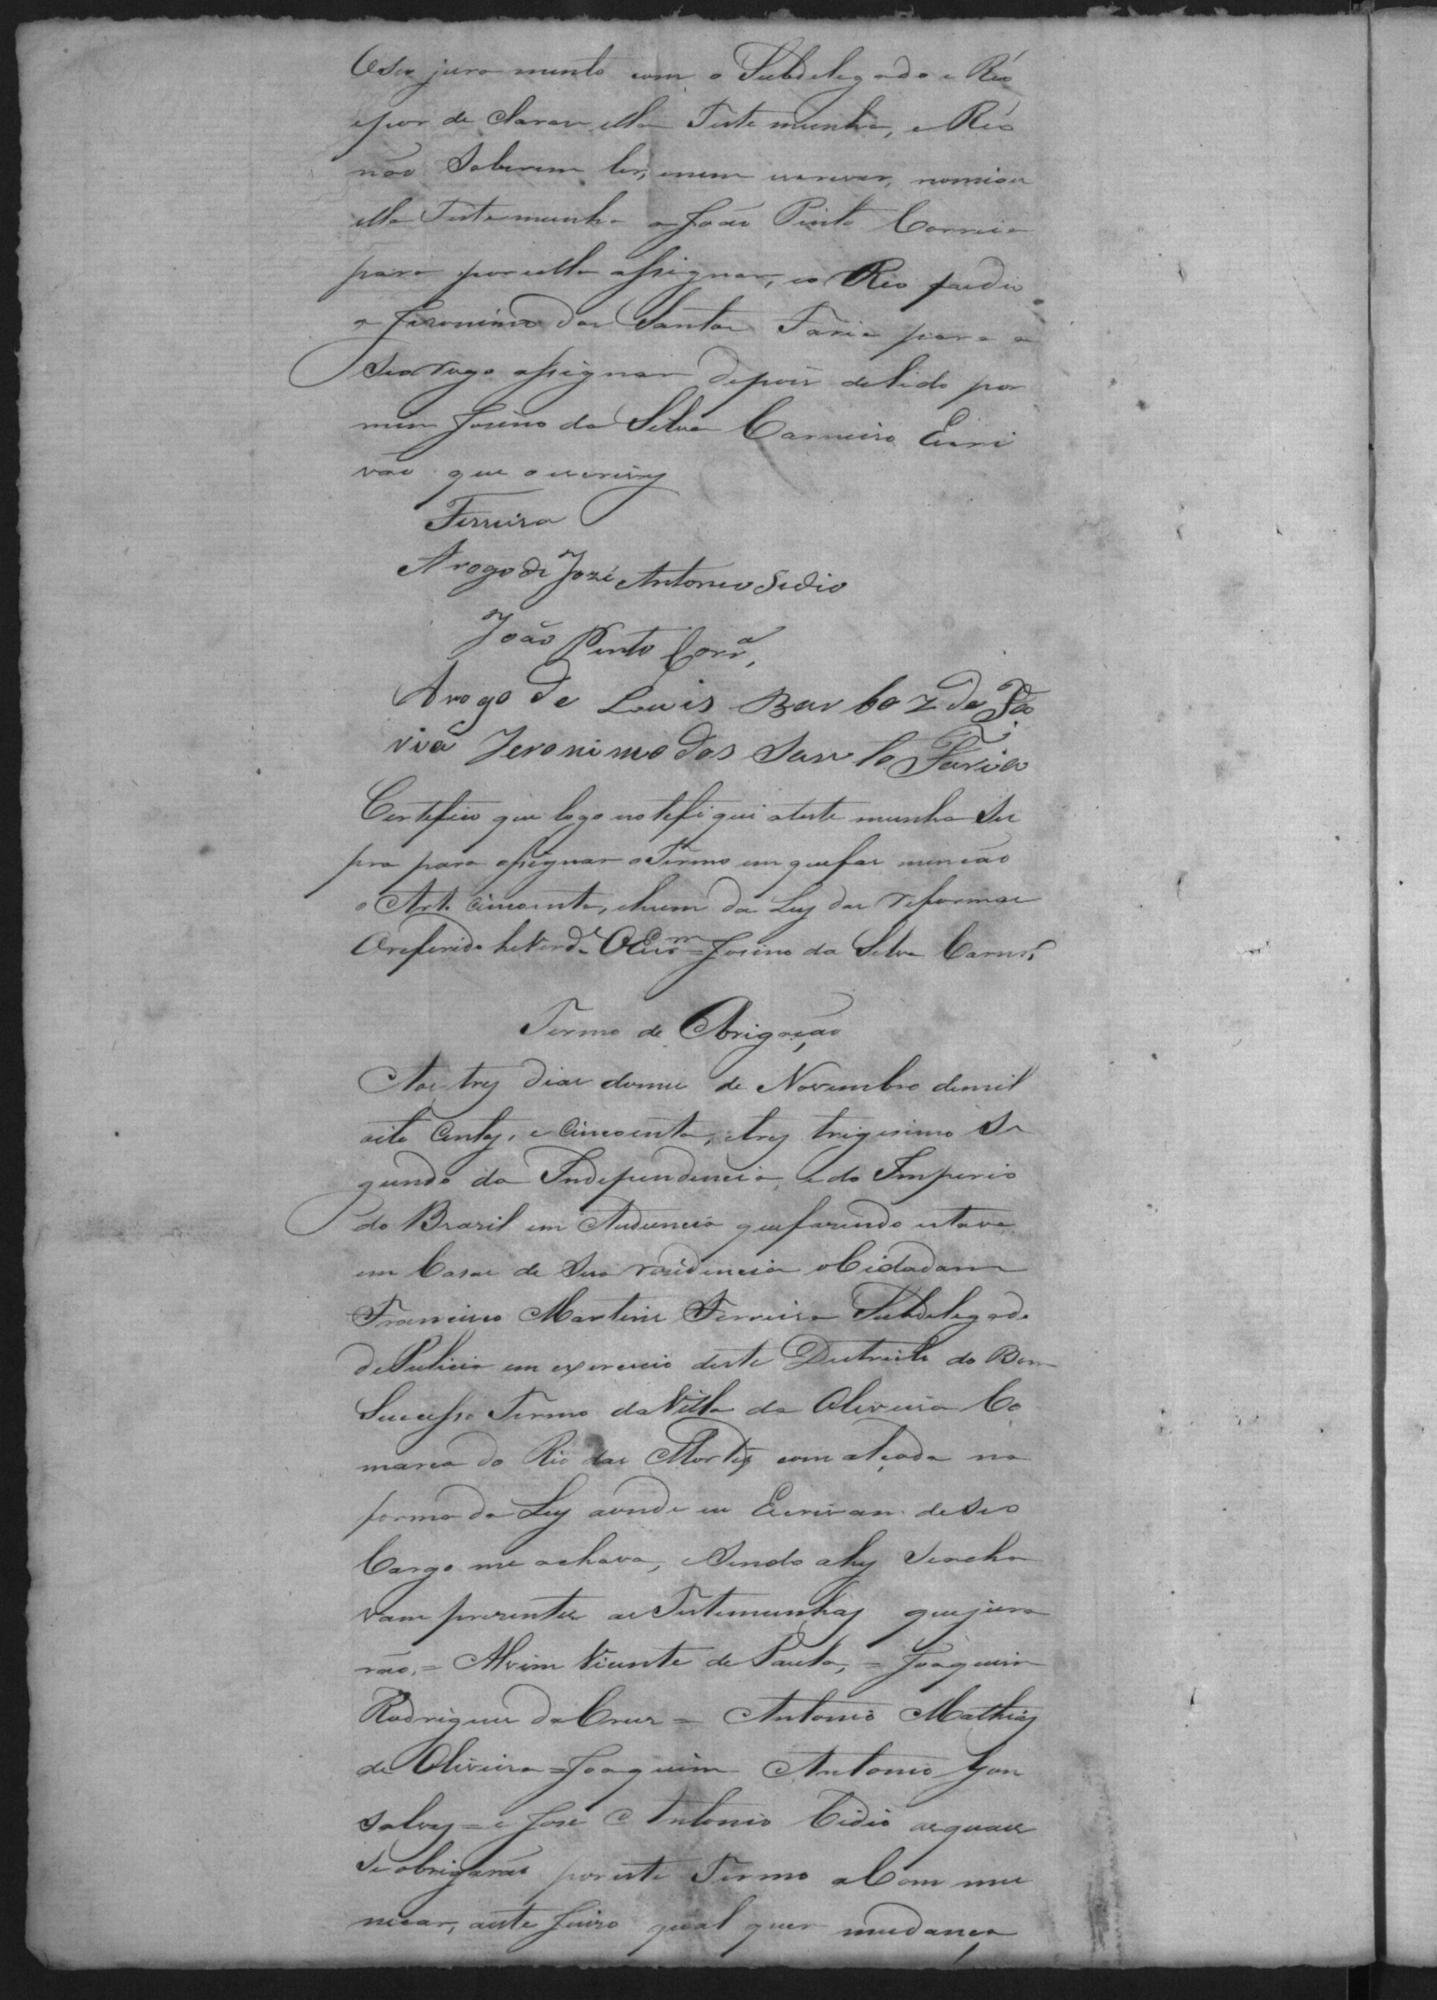 O seo juramento com o Subdelegado e Réo
epor de clarar ella Testemunha, e Réo
não Saberem ler, enem escrever, nomiou
ella Testemunha a João Pinto Correia
para por ella assignar, eo Reo pedio
a Jeronimo dos Santos Faria para a
Seo rogo assignar depois de lido por
mim Josino da Silva Carneiro Escri
vão que o escrevy
Ferreira
Arogo de José Antonio Sidio
João Pinto Corr.ª
Arogo de Luis Barboz de Fa
ria Jeronimo dos Santo Faria
Certefico que logo notefiquei atestemunha Su
pra para assignar o Termo em que faz menção
o Art. cincoenta, ehum da Ley das reformas
O referido he Verd.e O Escr.m Josino da Silva Carnr.º
Termo de Obrigação
Aos tres dias domes de Novembro demil
oito Centos, e Cincoenta, etres trigesimo Se
gundo da Independencia, e do Imperio
do Brazil em Audiencia quefazendo estava
em Casas de Sua residencia o Cidadam
Francisco Martins Ferreira Subdelegado
de Policia em exercicio deste Destricto do Bom
Sucesso Termo da Villa da Oliveira Co
marca do Rio das Mortes com alçada na
forma da Ley aonde eu Escrivam de seo
Cargo me achava, e Sendo ahy Seacha
vam prezentes as Testemunhas que jura
rão, = Alvim Vicente de Paula, = Joaquim
Rodrigues da Cruz = Antonio Mathias
de Oliveira = Joaquim Antonio Gon
salves = e José Antonio Cidio as quaes
Se obrigarão por este Termo a Com mu
nicar, aeste Juizo qual quer mudança